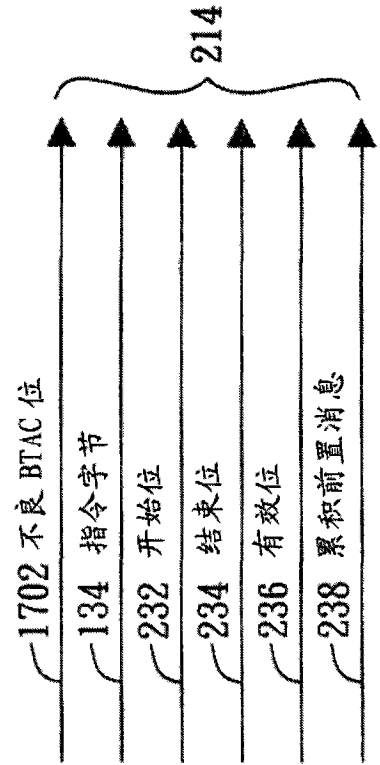 1702 不良 BTAC 位
134 指令字节
232 开始位
234 结束位
236 有效位
238 累积前置消息
214